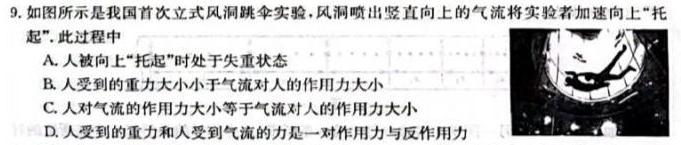 9. 如图所示是我国首次立式风洞跳伞实验,风洞喷出竖直向上的气流将实验者加速向上“托
起”.此过程中
A. 人被向上“托起”时处于失重状态
B. 人受到的重力大小小于气流对人的作用力大小
C. 人对气流的作用力大小等于气流对人的作用力大小
D. 人受到的重力和人受到气流的力是一对作用力与反作用力